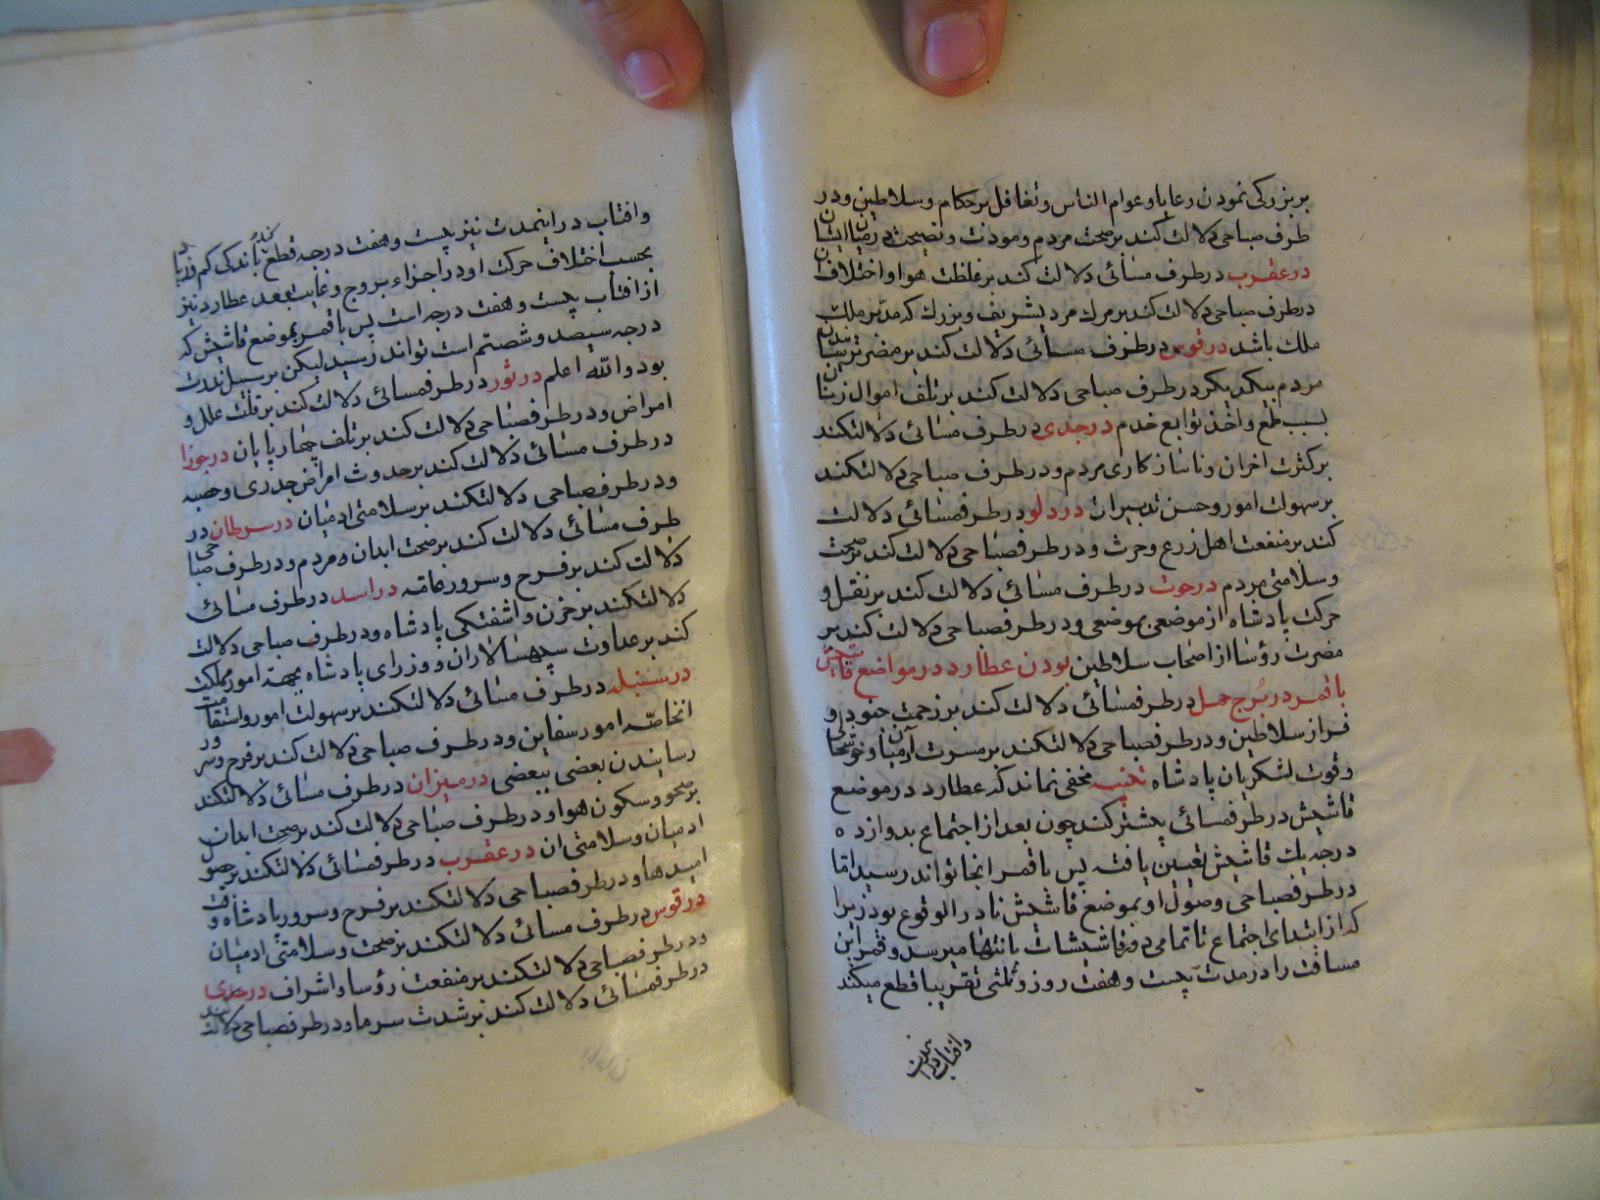 بر بزرکی نمودن رعایا و عوام الناس و تغافل بر حکام و سلاطین و در
طرف صباحی دلالت کند بر صحت مردم و مودت و نصیحت در میان ایشان
در عقرب در طرف مسائی دلالت کند بر غلظت هوا و اختلاف ان
در طرف صباحی دلالت کند بر مرک مرد شریف و بزرک که مدبر ملک
ملک باشد در قوس در طرف مسائی دلالت کند بر مضرت رسانیدن
مردم بیکدیکر در طرف صباحی دلالت کند بر تلف اموال زنان
بسبب طمع و اخذ توابع خدم در جدی در طرف مسائی دلالت کند
بر کثرت اخزان و ناسازکاری مردم و در طرف صباحی دلالت کند
بر سهولت امور و حسن تدبیرات در دلو در طرف مسائی دلالت
کند بر منفعت اهل زرع و حرث و در طرف صباحی دلالت کند بر صحت
و سلامتی مردم در حوت در طرف مسائی دلالت کند بر نقل و
حرکت پادشاه از موضعی بموضعی و در طرف صباحی دلالت کند بر
مضرت رؤسا از اصحاب سلاطین بودن عطارد در مواضع قاشیش
با قمر در برج حمل در طرف مسائی دلالت کند بر زحمت جنود و
فراز سلاطین و در طرف صباحی دلالت کند بر مسرت آدمیان و خوشحالی
و قوت لشکریان پادشاه تنبیه مخفی نماند که عطارد در موضع
قاشیش در طرف مسائی پیشتر کند چون بعد از اجتماع بدوازده
درجه یک قاشیش تعیین یافته پس با قمر انجا تواند رسید اما
در طرف صباحی وصول او بموضع قاشیش نادر الوقوع بود زیرا
که از ابتدای اجتماع تا تمامی دور قاشیشات بانتها میرسد و قمر این
مسافت را در مدت بیست و هفت روز و ثلثی تقریبا قطع میکند
و افتاب در اینمدت
و افتاب در اینمدت نیز بیست و هفت درجه قطع کند باندک کم و زیاد
بحسب اختلاف حرکت او در اجزاء بروج و غایت بعد عطارد نیز
از افتاب بیست و هفت درجه است پس با قمر بموضع قاشیش که
درجه سیصد و شصتم است تواند رسید لیکن بر سبیل ندرت
بود والله اعلم در ثور در طرف مسائی دلالت کند بر قلت علل و
امراض و در طرف صباحی دلالت کند بر تلف چهارپایان در جوزا
در طرف مسائی دلالت کند بر حدوث امراض جدری و حصبه
و در طرف صباحی دلالت کند بر سلامتی ادمیان در سرطان در
طرف مسائی دلالت کند بر صحت ابدان و مردم و در طرف صباحی
دلالت کند بر فرح و سرور عامه در اسد در طرف مسائی
دلالت کند بر حزن و اشفتکی پادشاه و در طرف صباحی دلالت
کند بر عداوت سپهسالاران و وزرای پادشاه بجهة امور مملکت
در سنبله در طرف مسائی دلالت کند بر سهولت امور و استقامت
انخاصّه امور سفاین و در طرف صباحی دلالت کند بر فرح و سرور
رسانیدن بعضی ببعضی در میزان در طرف مسائی دلالت کند
بر صحو و سکون هوا و در طرف صباحی دلالت کند بر صحت ابدان
ادمیان و سلامتی ان در عقرب در طرف مسائی دلالت کند بر حصول
امیدها و در طرف صباحی دلالت کند بر فرح و سرور پادشاه
در قوس در طرف مسائی دلالت کند بر صحت و سلامتی ادمیان
و در طرف صباحی دلالت کند بر منفعت رؤسا و اشراف در جدی
در طرف مسائی دلالت کند بر شدت سرما و در طرف صباحی دلالت کند